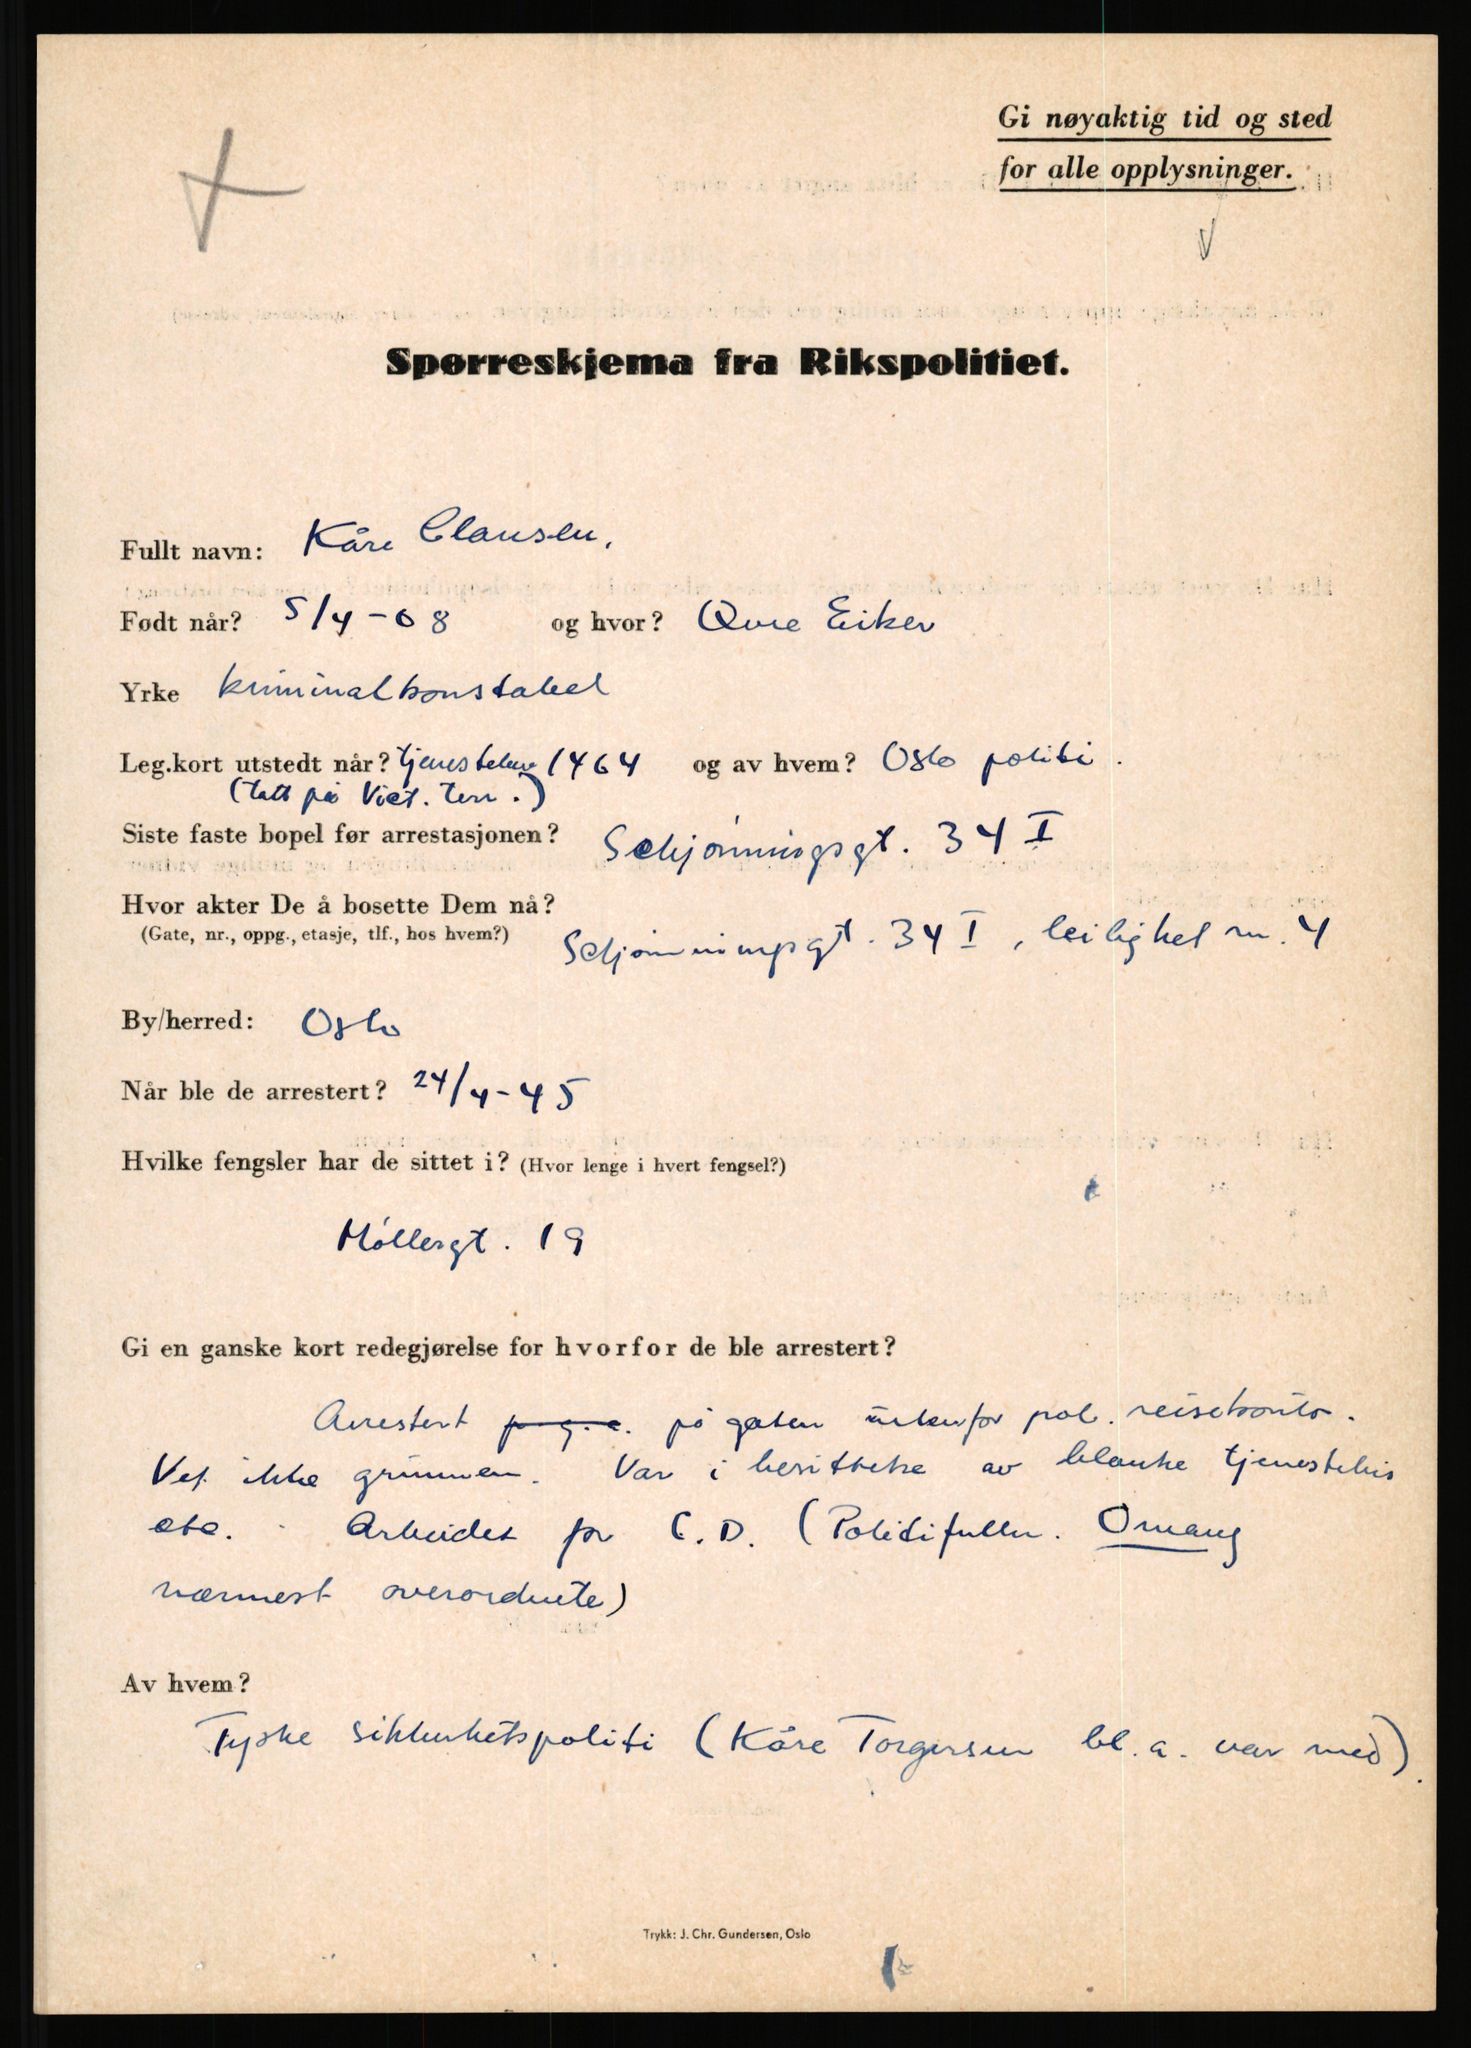 Gi nøyaktig tid og sted
for alle opplysninger.
Spørreskjema fra Rikspolitiet.
Fullt navn: Kåre Clausen.
Født når? 5/4-08 og hvor? Øvre Eiker
Yrke kriminalkonstabel
Leg.kort utstedt når? tjenestebev 1464 og av hvem? Oslo politi.
(tatt på Vict. Terr.)
Siste faste bopel før arrestasjonen? Schjønningsgt. 34 I
Hvor akter De å bosette Dem nå?
(Gate, nr., oppg., etasje, tlf., hos hvem?) Schjønningsgt. 34 I, leilighet nr. 4
By/herred: Oslo
Når ble de arrestert? 24/4-45
Hvilke fengsler har de sittet i? (Hvor lenge i hvert fengsel?)
Møllergt. 19
Gi en ganske kort redegjørelse for hvorfor de ble arrestert?
Arrestert på gaten utenfor pol. reisekontor.
Vet ikke grunnen. Var i besittelse av blanke tjenestebevis
etc. Arbeidet for C.D. (Politifullm. Omang
nærmest overordnete)
Av hvem?
Tyske sikkerhetspoliti (Kåre Torgersen bl.a. var med).
Trykk: J. Chr. Gundersen, Oslo